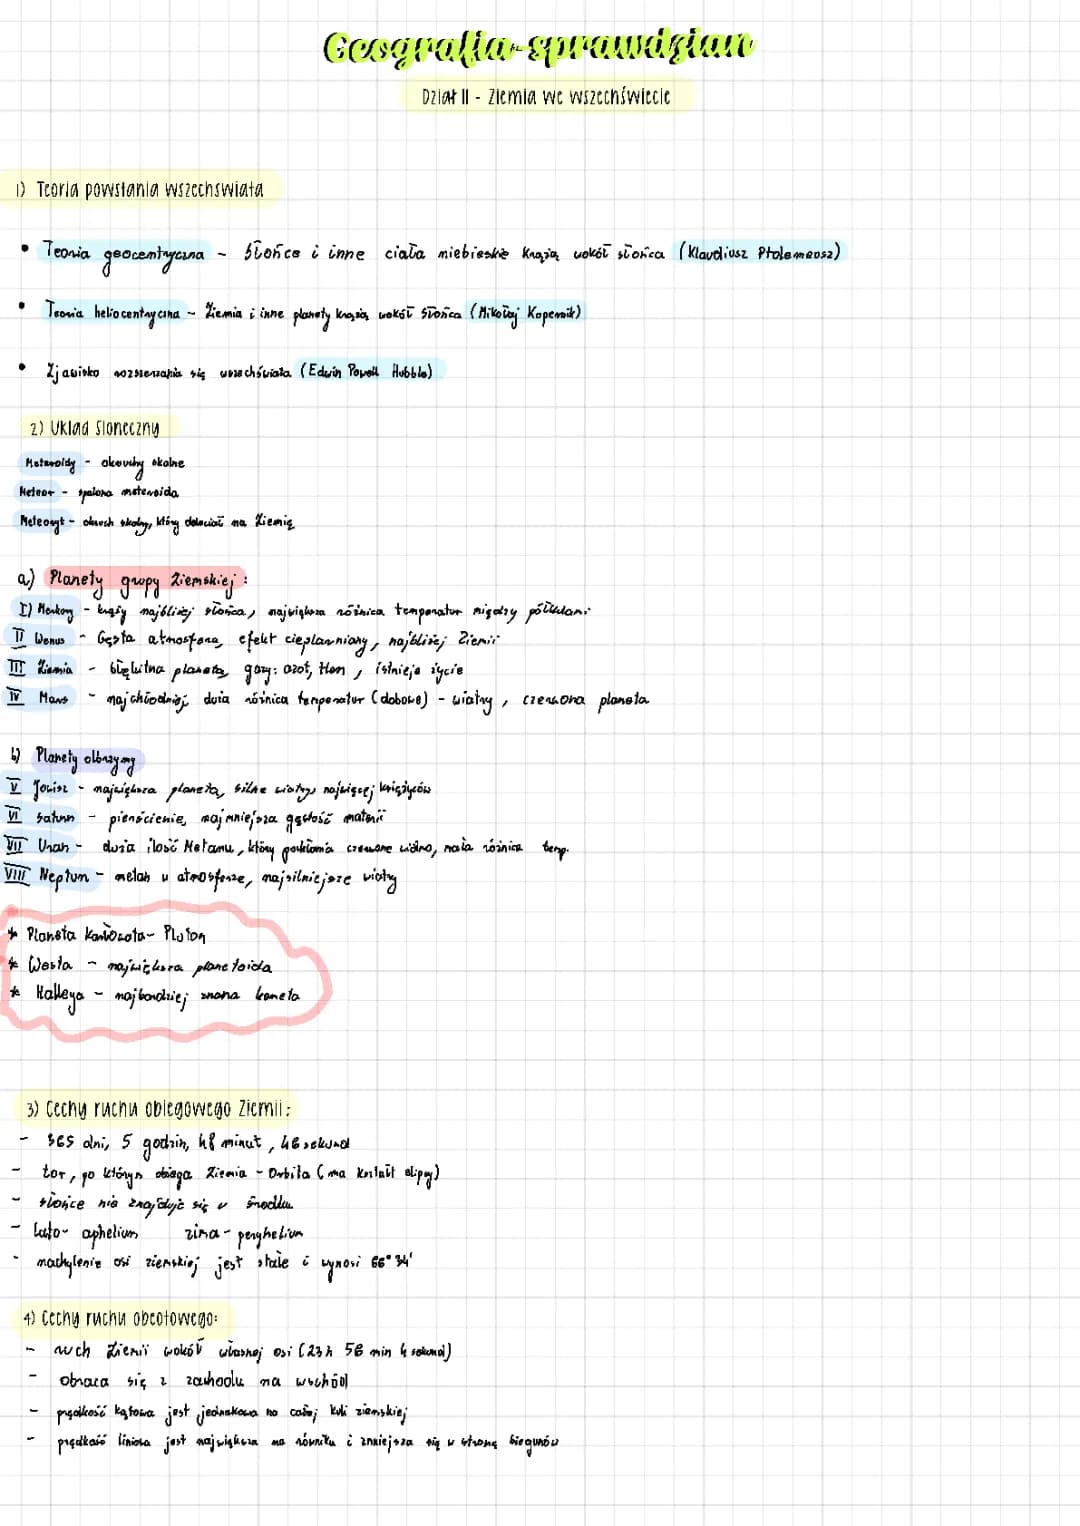 Geografia-sprawdzian
Dział II - Ziemia we wszechświecie
1) Teoria powstania wszechswiata
• Teoria geocentryczna - Słońce i inne ciała niebieskie krążą wokół słońca (Klaudiusz Ptolemeusz)
• Teoria heliocentryczna - Ziemia i inne planety krążą wokół Słońca (Mikołaj Kopernik)
• Zjawisko rozszerzania się wszechświata (Edwin Powell Hubble)
2) Układ Słoneczny
Meteroidy - okruchy skalne
Meteor - spalona meteroida
Meteoryt - okruch skalny, który doleciał na Ziemię
a) Planety grupy Ziemskiej:
I) Merkury - krąży najbliżej słońca, największa różnica temperatur między półkulami
II Wenus - Gęsta atmosfera, efekt cieplarniany, najbliżej Ziemii
III Ziemia - błękitna planeta, gazy: azot, tlen, istnieje życie
IV Mars - najchłodniej, duża różnica temperatur (dobowe) - wiatry, czerwona planeta
b) Planety olbrzymy
V Jowisz - największa planeta, silne wiatry, najwięcej księżyców
VI Saturn - pierścienie, najmniejsza gęstość materii
VII Uran - duża ilość Metanu, który pochłania czerwone widmo, mała różnica temp.
VIII Neptun - metan w atmosferze, najsilniejsze wiatry
* Planeta karłowata - Pluton
* Westa - największa planetoida
* Halleya - najbardziej znana kometa
3) Cechy ruchu obiegowego Ziemii:
- 365 dni, 5 godzin, 48 minut, 46 sekund
- tor, po którym obiega Ziemia - Orbita (ma kształt elipsy)
- słońce nie znajduje się w środku
- lato- aphelium zima - peryhelium
- nachylenie osi ziemskiej jest stałe i wynosi 66°34'
4) Cechy ruchu obrotowego:
- ruch Ziemii wokół własnej osi (23h 56 min 4 sekund)
- obraca się z zachodu na wschód
- prędkość kątowa jest jednakowa na całej kuli ziemskiej
- prędkość liniowa jest największa na równiku i zmniejsza się w stronę biegunów